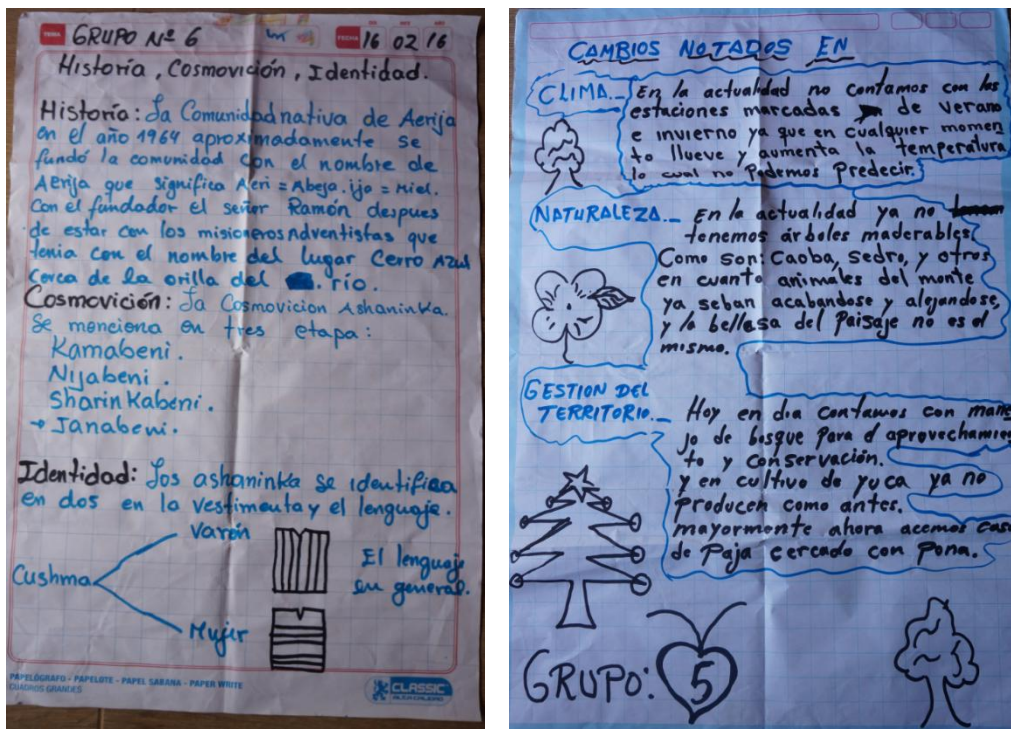 TEMA GRUPO Nº 6 FECHA 16 02 16
Historía, Cosmovición, Identidad.
Historía: La Comunidad nativa de Aerija
en el año 1964 aproximadamente se
fundó la comunidad con el nombre de
Aerija que significa Aeri = Abeja. ija = Miel.
Con el fundador el señor Ramón despues
de estar con los misioneros Adventistas que
tenia con el nombre del lugar Cerro Azul
Cerca de la orilla del río.
Cosmovición: La Cosmovicion Ashaninka.
Se menciona en tres etapa:
Kamabeni.
Nijabeni.
Sharinkabeni.
→ Janabeni.
Identidad: Los ashaninka se identifica
en dos en la vestimenta y el lenguaje.
Cushma
Varón
Mujir
El lenguaje
en general.
PAPELÓGRAFO - PAPELOTE - PAPEL SABANA - PAPER WRITE
CUADROS GRANDES
CLASSIC
CAMBIOS NOTADOS EN
CLIMA._ En la actualidad no contamos con las
estaciones marcadas de verano
e invierno ya que en cualquier momen
to llueve y aumenta la temperatura
lo cual no Podemos Predecir.
NATURALEZA._ En la actualidad ya no
tenemos árboles maderables,
Como son: Caoba, Sedro, y otros
en cuanto animales del monte
ya seban acabandose y alejandose,
y la bellesa del Paisaje no es el
mismo.
GESTION DEL
TERRITORIO._ Hoy en dia contamos con mane
jo de bosque Para el aprovechamien
to y conservación.
y en cultivo de yuca ya no
Producen como antes.
mayormente ahora acemos casa
de Paja cercado con Pona.
GRUPO: 5